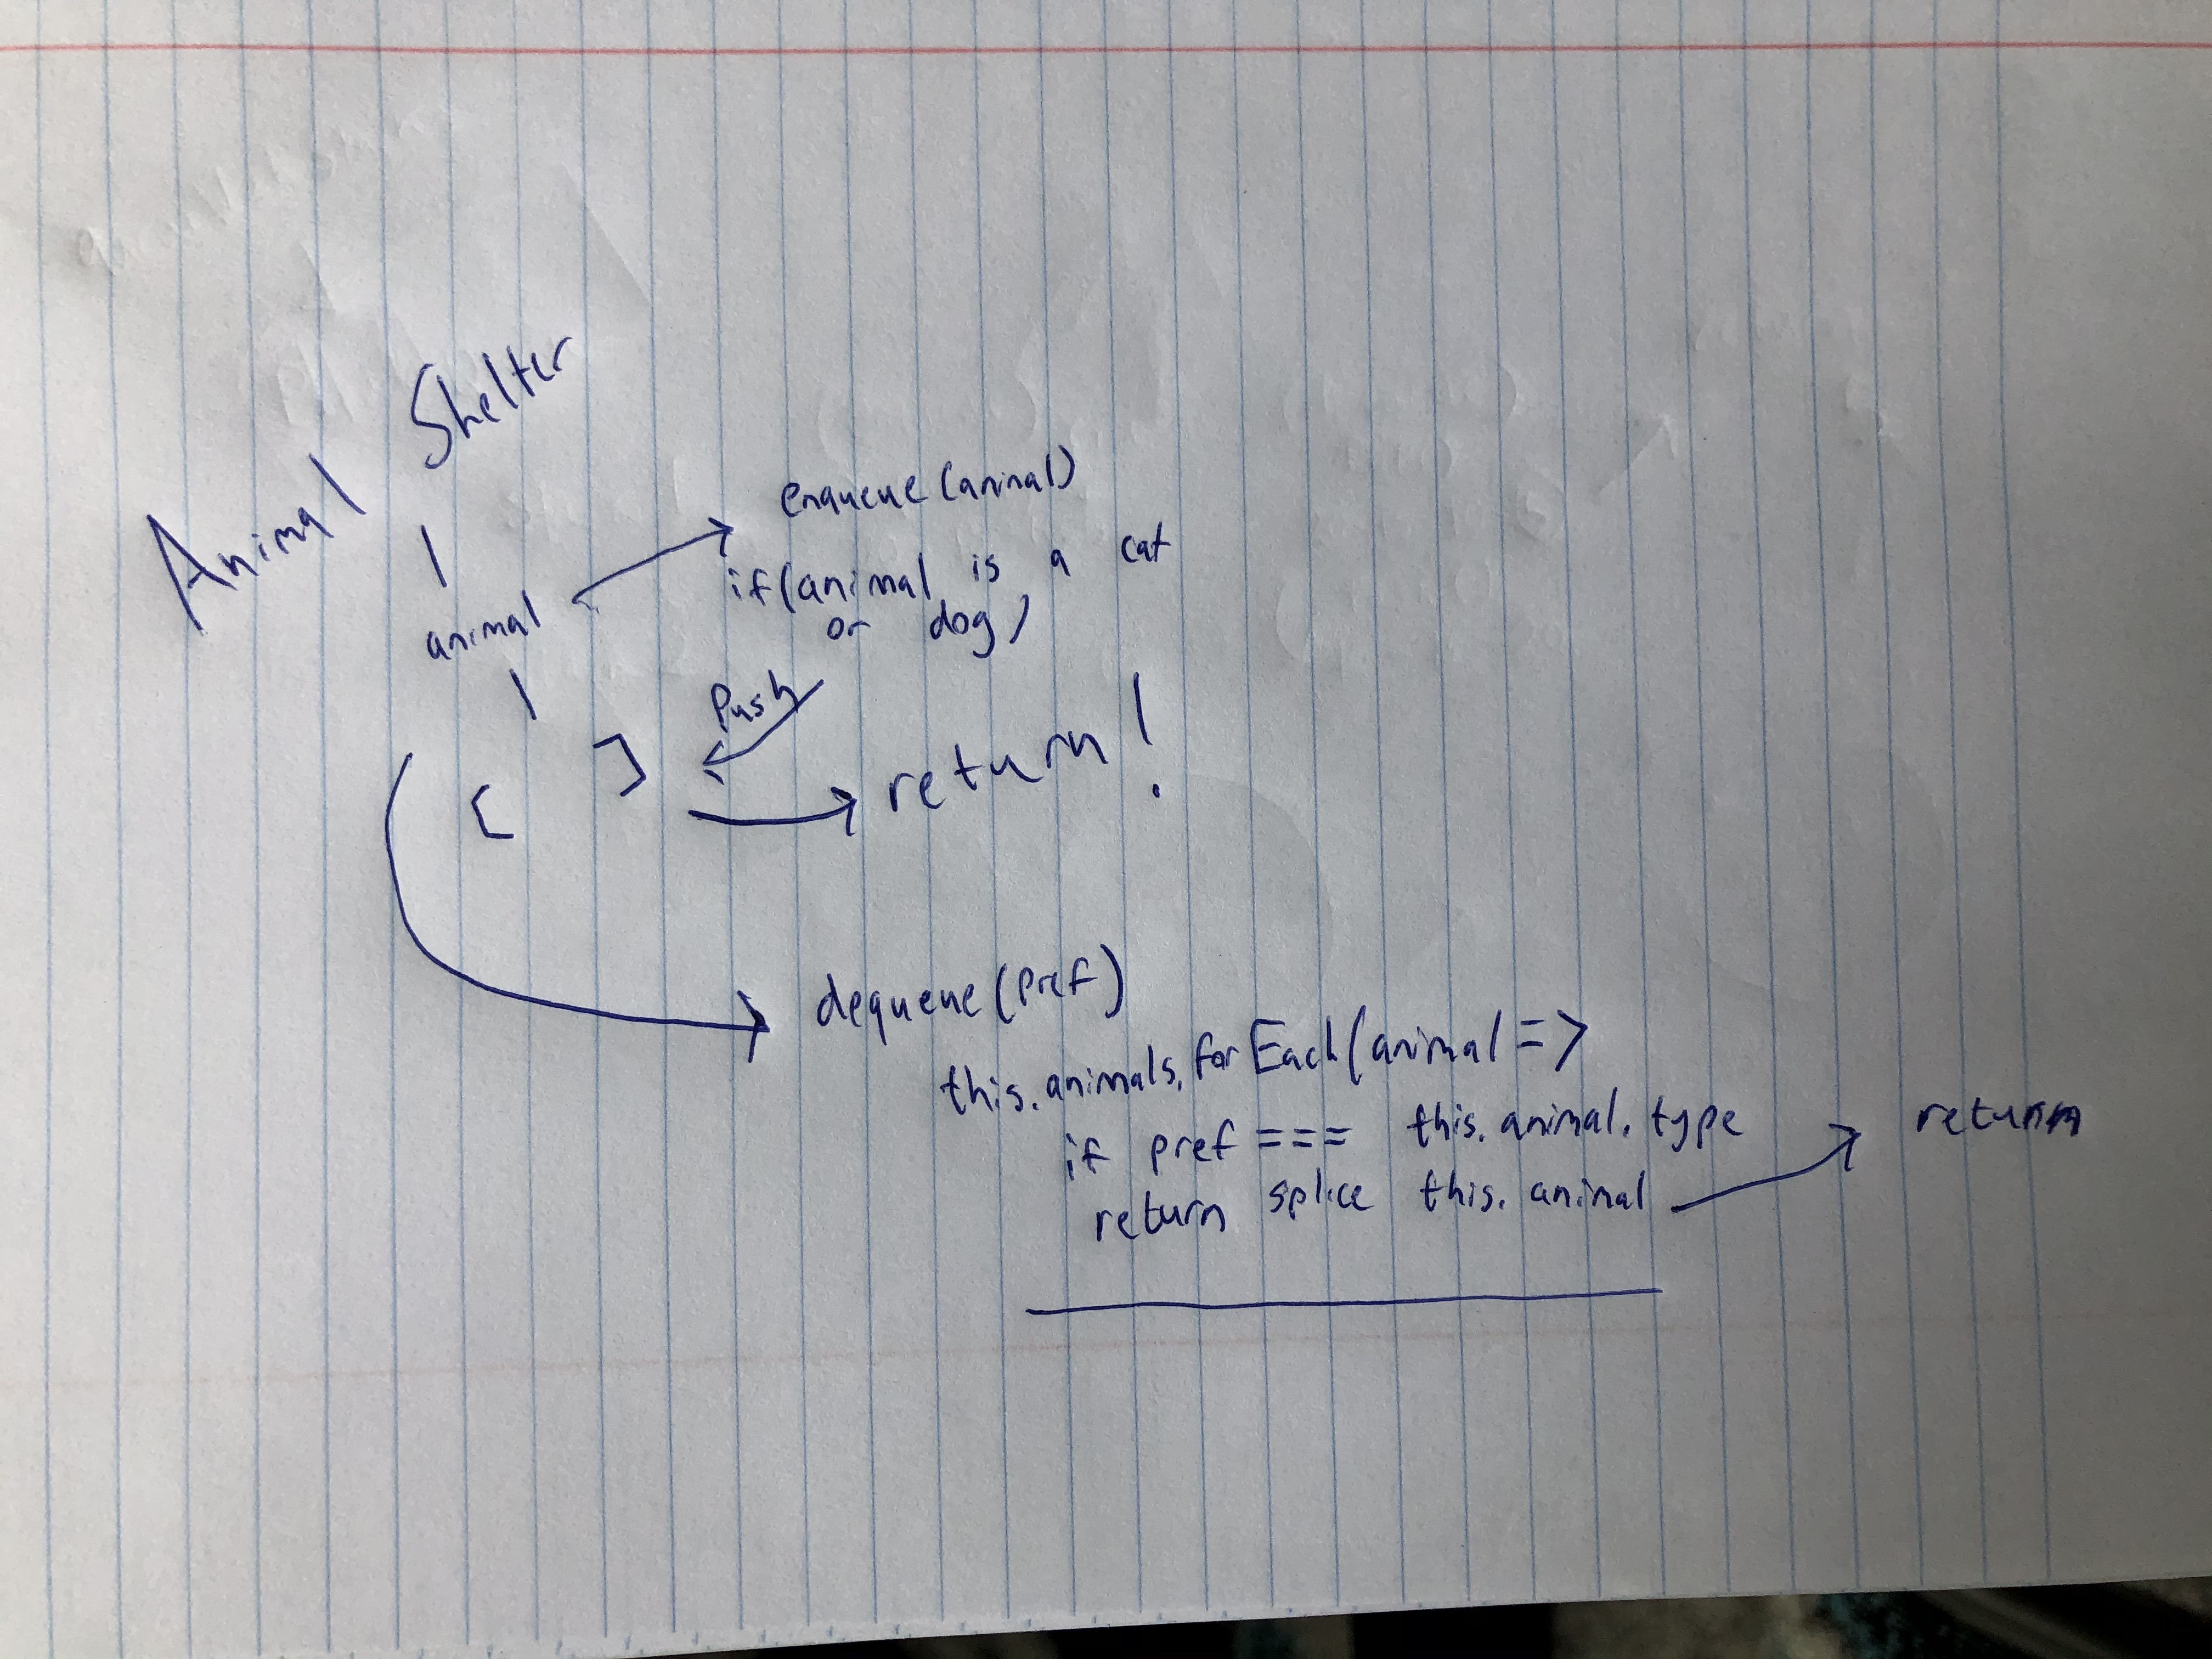 Animal Shelter
animal
enqueue(animal)
if(animal is a cat
or dog)
Push
[ ]
return!
dequeue(pref)
this.animals.forEach(animal =>
if pref === this.animal.type
return splice this.animal
return